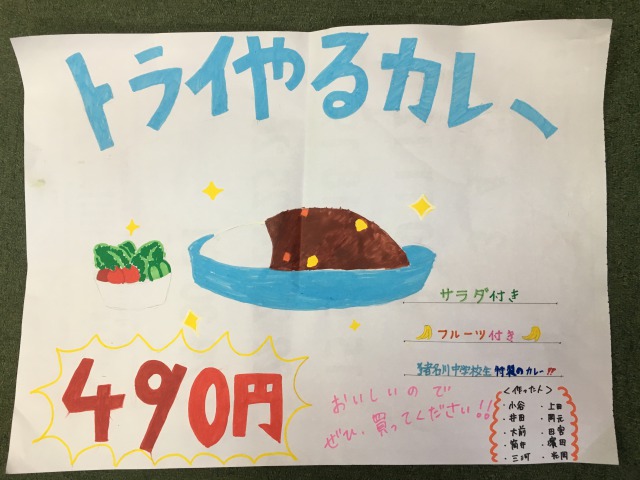 トライやるカレー
サラダ付き
フルーツ付き
猪名川中学校生 特製のカレー!!
490円
おいしいので
ぜひ、買ってください!!
<作った人>
・小谷 ・上田
・井田 ・岡元
・大前 ・田宮
・濱田
・三河